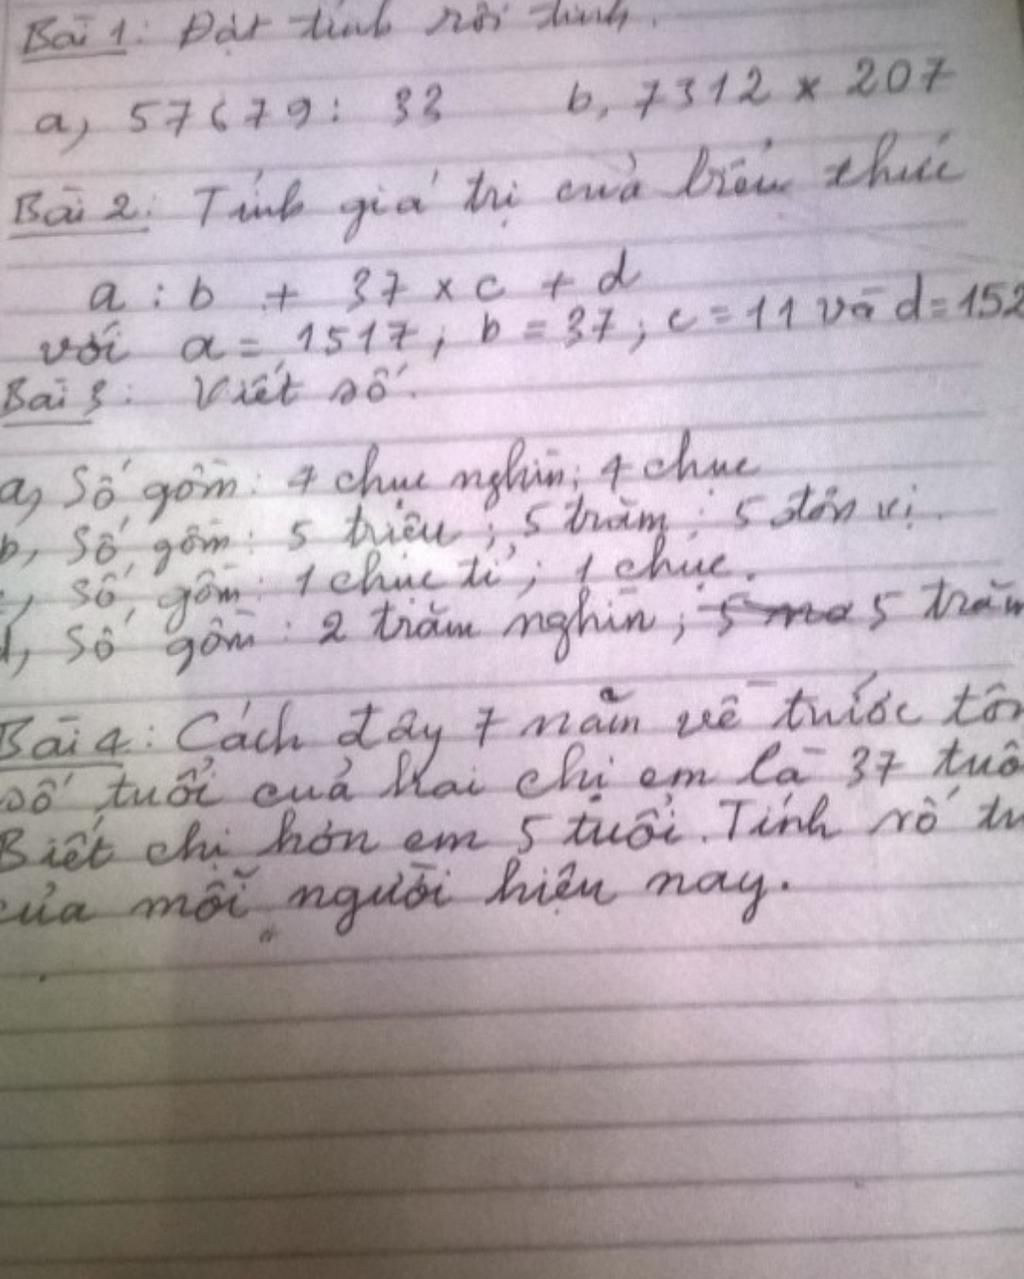 Bài 1: Đặt tính rồi tính.
a, 57679: 33 b, 7312 x 207
Bài 2: Tính giá trị của biểu thức
a : b + 37 x c + d
với a = 1517; b = 37; c = 11 và d = 152
Bài 3: Viết số.
a, Số gồm: 7 chục nghìn; 7 chục
b, Số gồm: 5 triệu; 5 trăm; 5 đơn vị.
c, Số gồm: 1 chục tỉ; 1 chục.
d, Số gồm: 2 trăm nghìn; 5 trăm
Bài 4: Cách đây 7 năm về trước tổn
số tuổi của hai chị em là 37 tuổ
Biết chị hơn em 5 tuổi. Tính số tu
của mỗi người hiện nay.